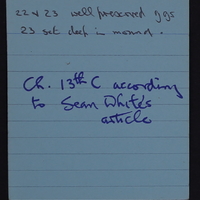 22 & 23 well preserved ggs
23 set deep in mound.
Ch. 13th C according
to Sean White's
article